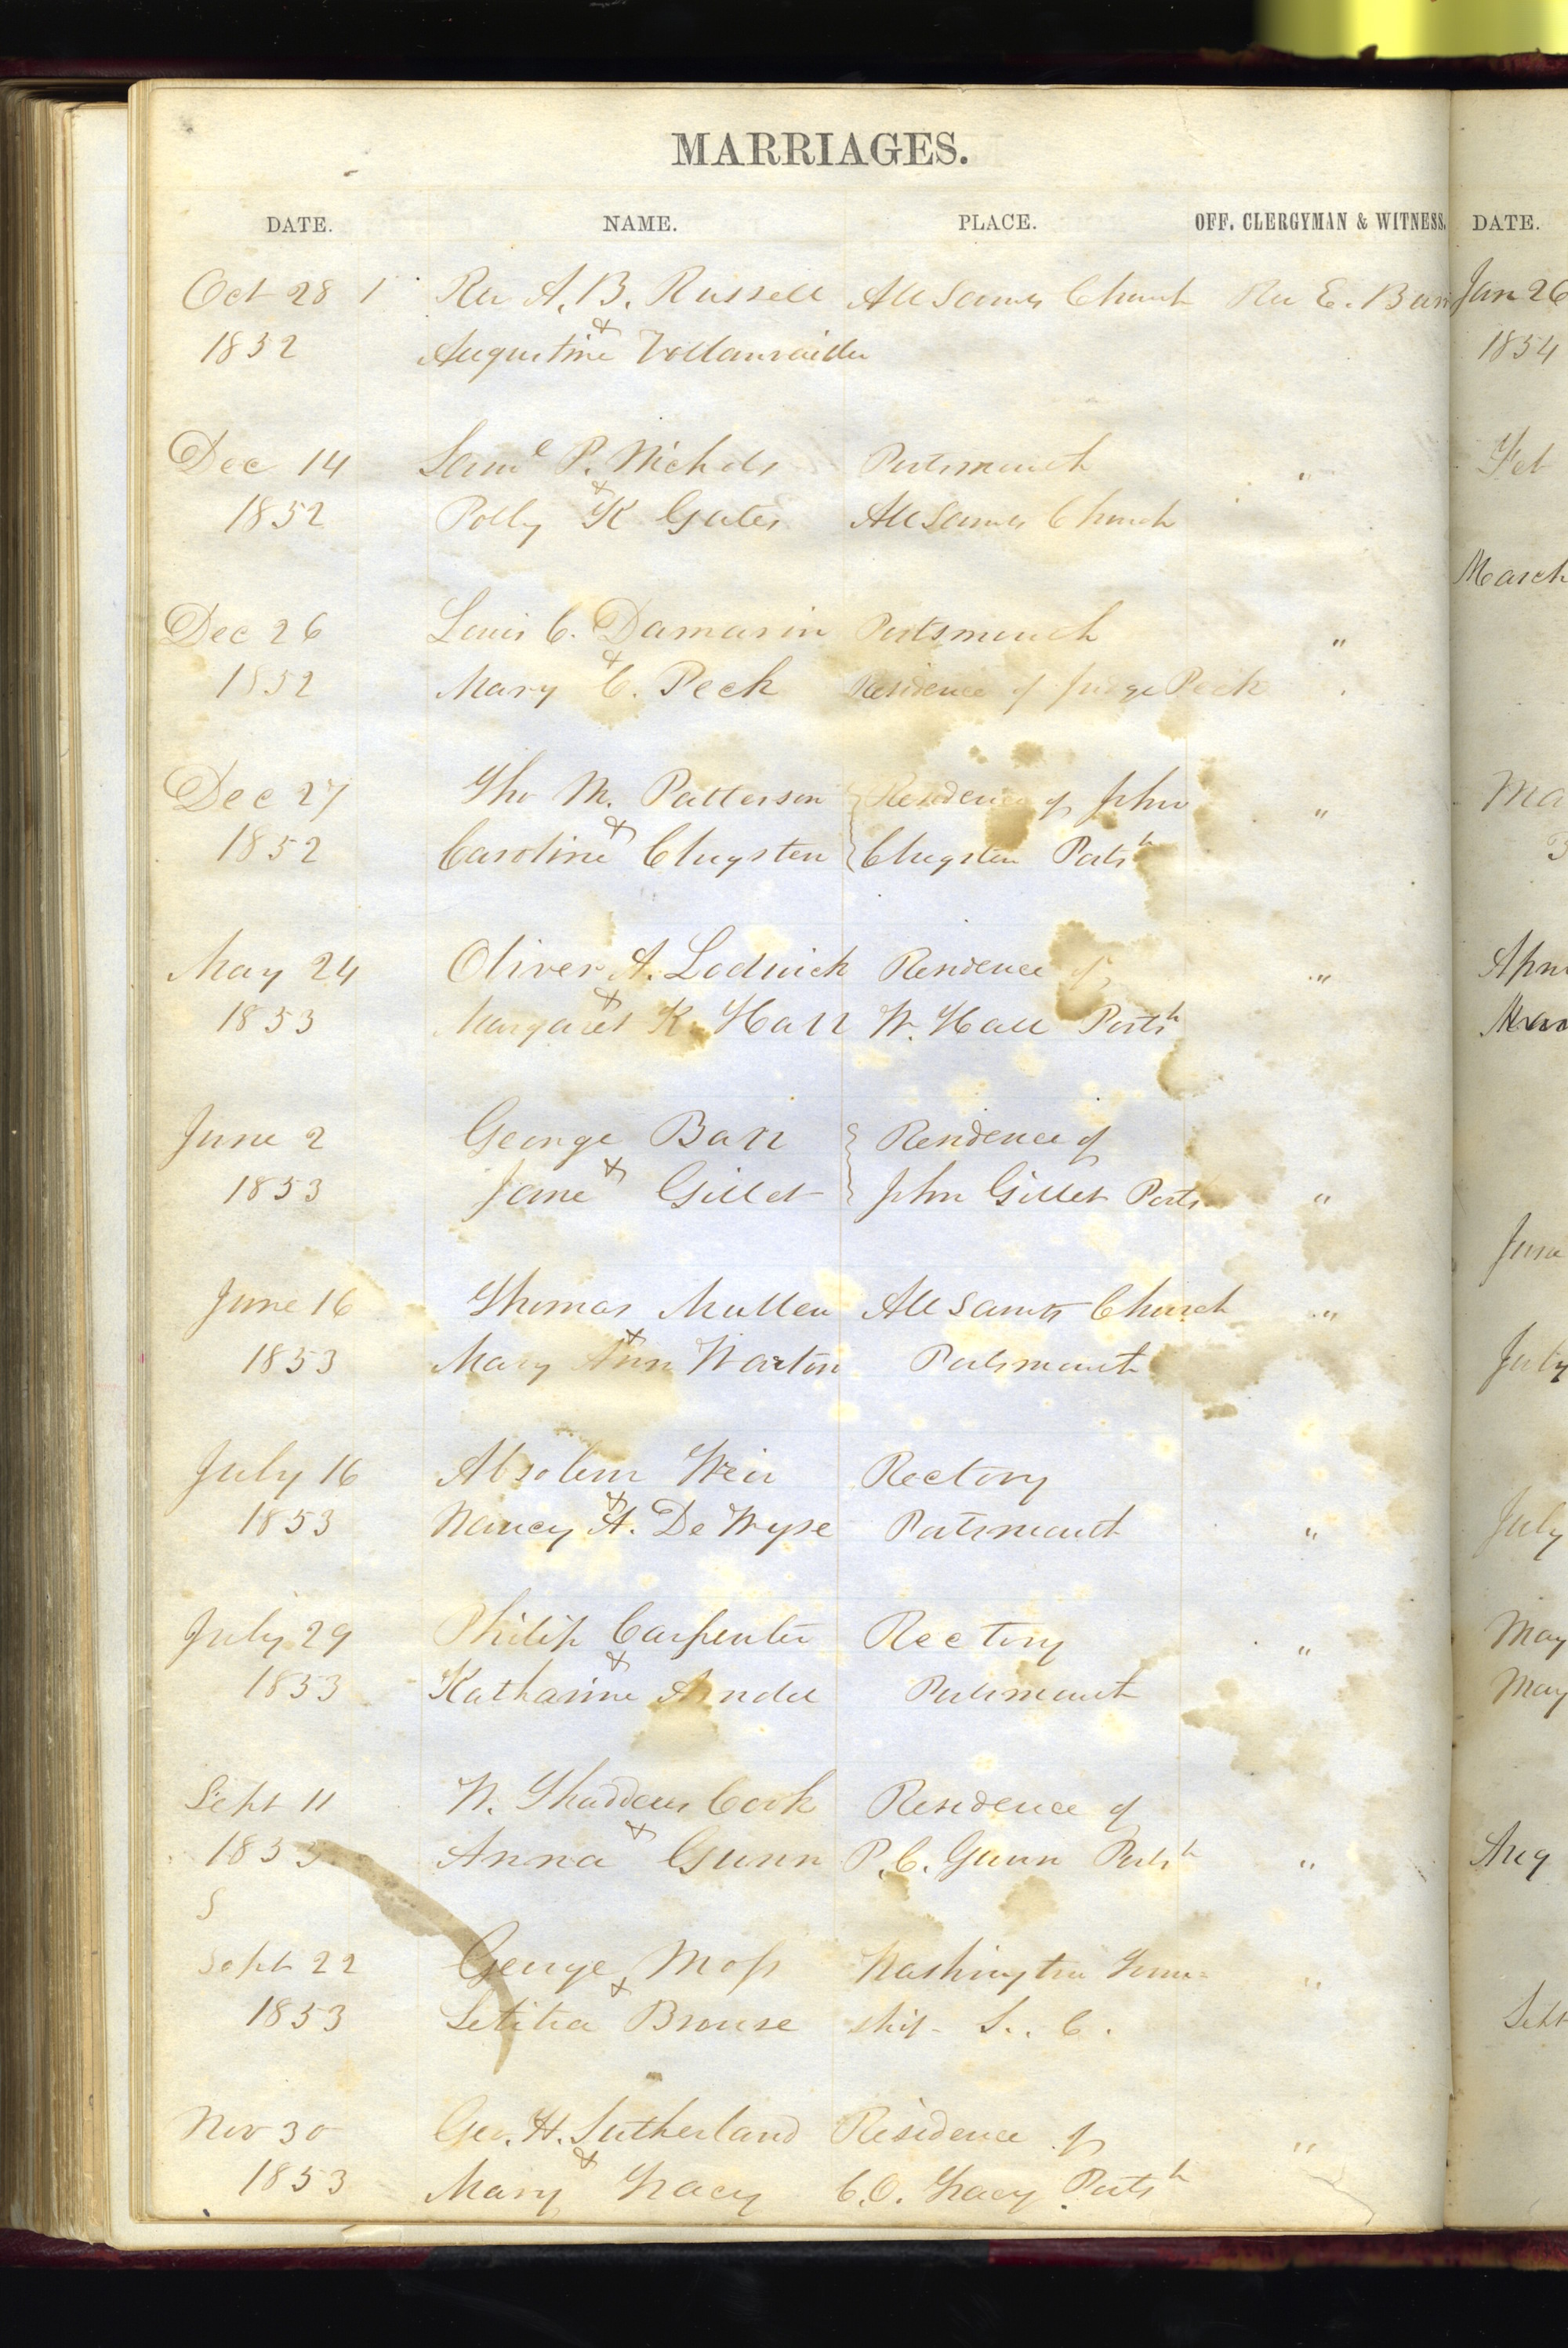 MARRIAGES.
DATE. NAME. PLACE. OFF. CLERGYMAN & WITNESS. DATE.
Oct 28 Rev A. B. Russell All Saints Church Rev E. Jan 26
&
1852 Augustine 1854
Dec 14 Saml P. Nichols Portsmouth " Feb
&
1852 Polly K Gates All Saints Church
March
Dec 26 Louis C. Damarin Portsmouth "
&
1852 Mary C. Peck Residence of Judge Peck
Dec 27 Tho M. Patterson Residence of John " Ma
&
1852 Caroline Clugsten Clugsten Portsh
May 24 Oliver A. Lodwick Residence of "
&
1853 Margaret K. Hall W. Hall Portsh
June 2 George Ball Residence of
&
1853 Jane Gillet John Gillet Ports "
June 16 Thomas Mullen All Saints Church "
&
1853 Mary Ann Warton Portsmouth July
July 16 Absolem Weir Rectory
&
1853 Nancy A. De Wyse Portsmouth " July
July 29 Philip Carpenter Rectory " May
&
1853 Katharine Portsmouth May
Sept 11 W. Thaddeus Cook Residence of
&
1853 Anna Gunn P. C. Gunn Portsh " Aug
S
Sept 22 George Moss Washington Town= "
&
1853 Letitia Brouse ship S. C.
Nov 30 Geo. H. Sutherland Residence of "
&
1853 Mary Tracy C. O. Tracy Portsh